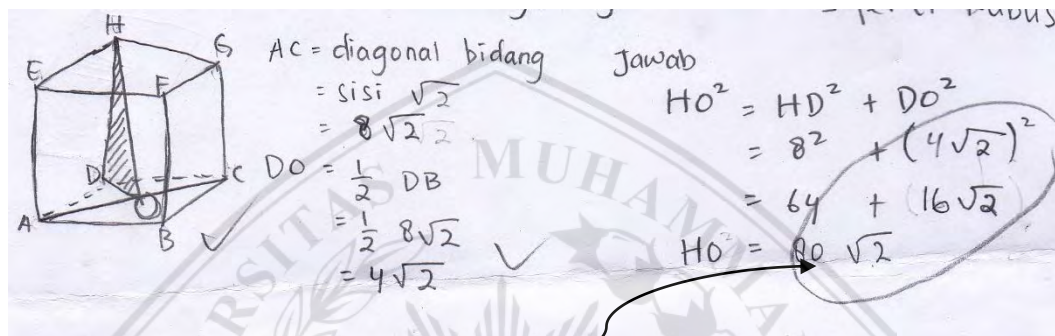 H
E
G
F
D
C
A
B
O
AC = diagonal bidang
= sisi √2
= 8 √2
DO = 1/2 DB
= 1/2 8√2
= 4√2
Jawab
HO² = HD² + DO²
= 8² + (4√2)²
= 64 + (16√2)
HO² = 80 √2
MUHAMMA